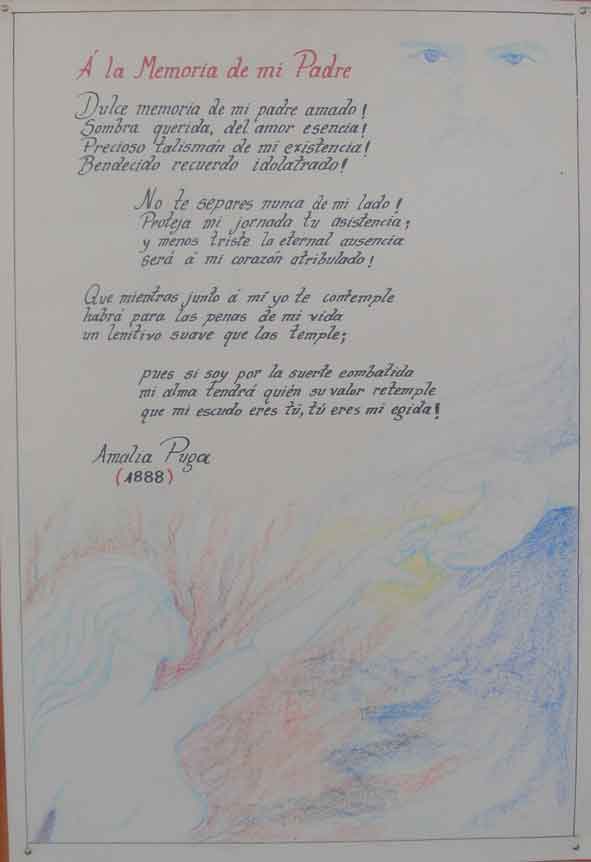 Á la Memoria de mi Padre
Dulce memoria de mi padre amado!
Sombra querida, del amor esencia!
Precioso talismán de mi existencia!
Bendecido recuerdo idolatrado!
No te separes nunca de mi lado!
Proteja mi jornada tu asistencia;
y menos triste la eternal ausencia
será á mi corazón atribulado!
Que mientras junto á mí yo te contemple
habrá para las penas de mi vida
un lenitivo suave que las temple;
pues si soy por la suerte combatida
mi alma tendrá quién su valor retemple
que mi escudo eres tú, tú eres mi egida!
Amalia Puga
(1888)